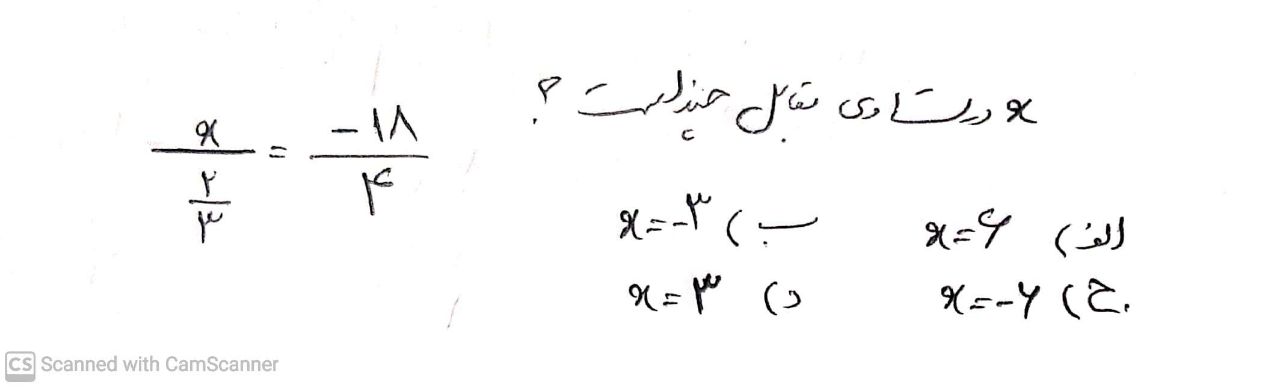 x در تساوی مقابل چند است ؟
x / (۲/۳) = -۱۸ / ۴
الف) x=۶
ب) x=-۳
ج) x=-۶
د) x=۳
CS Scanned with CamScanner